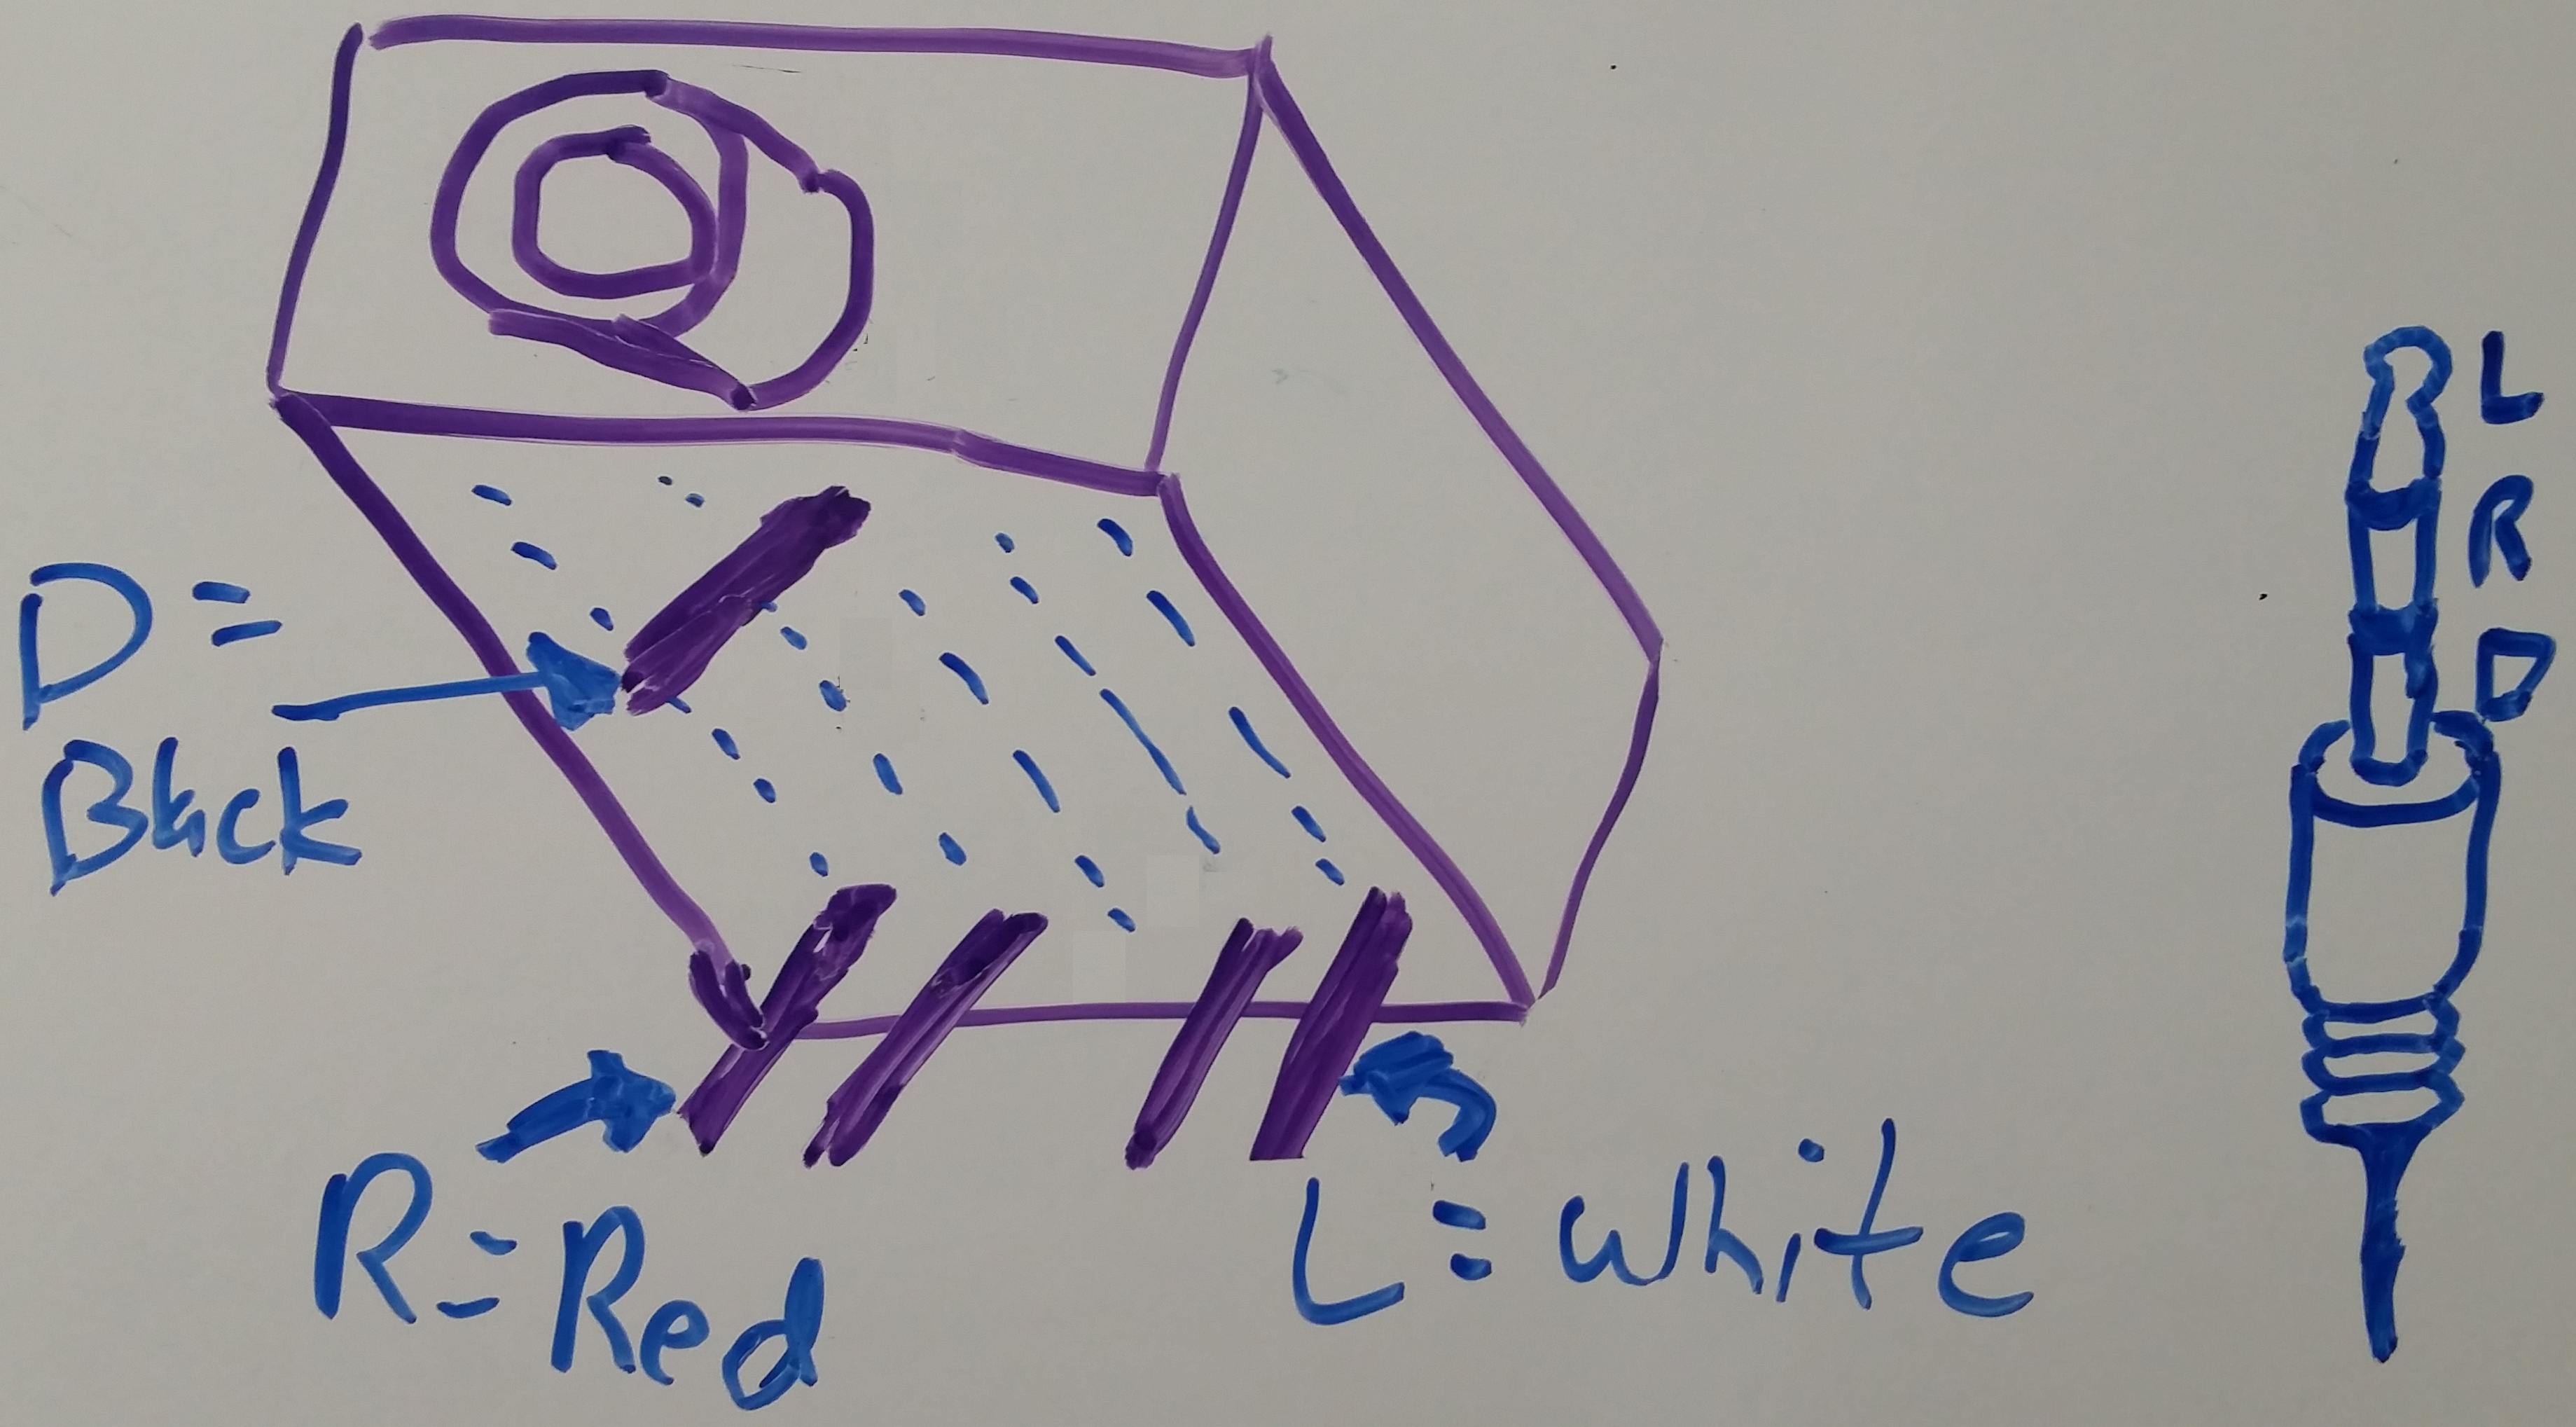 D =
Black
R = Red
L = White
L
R
D